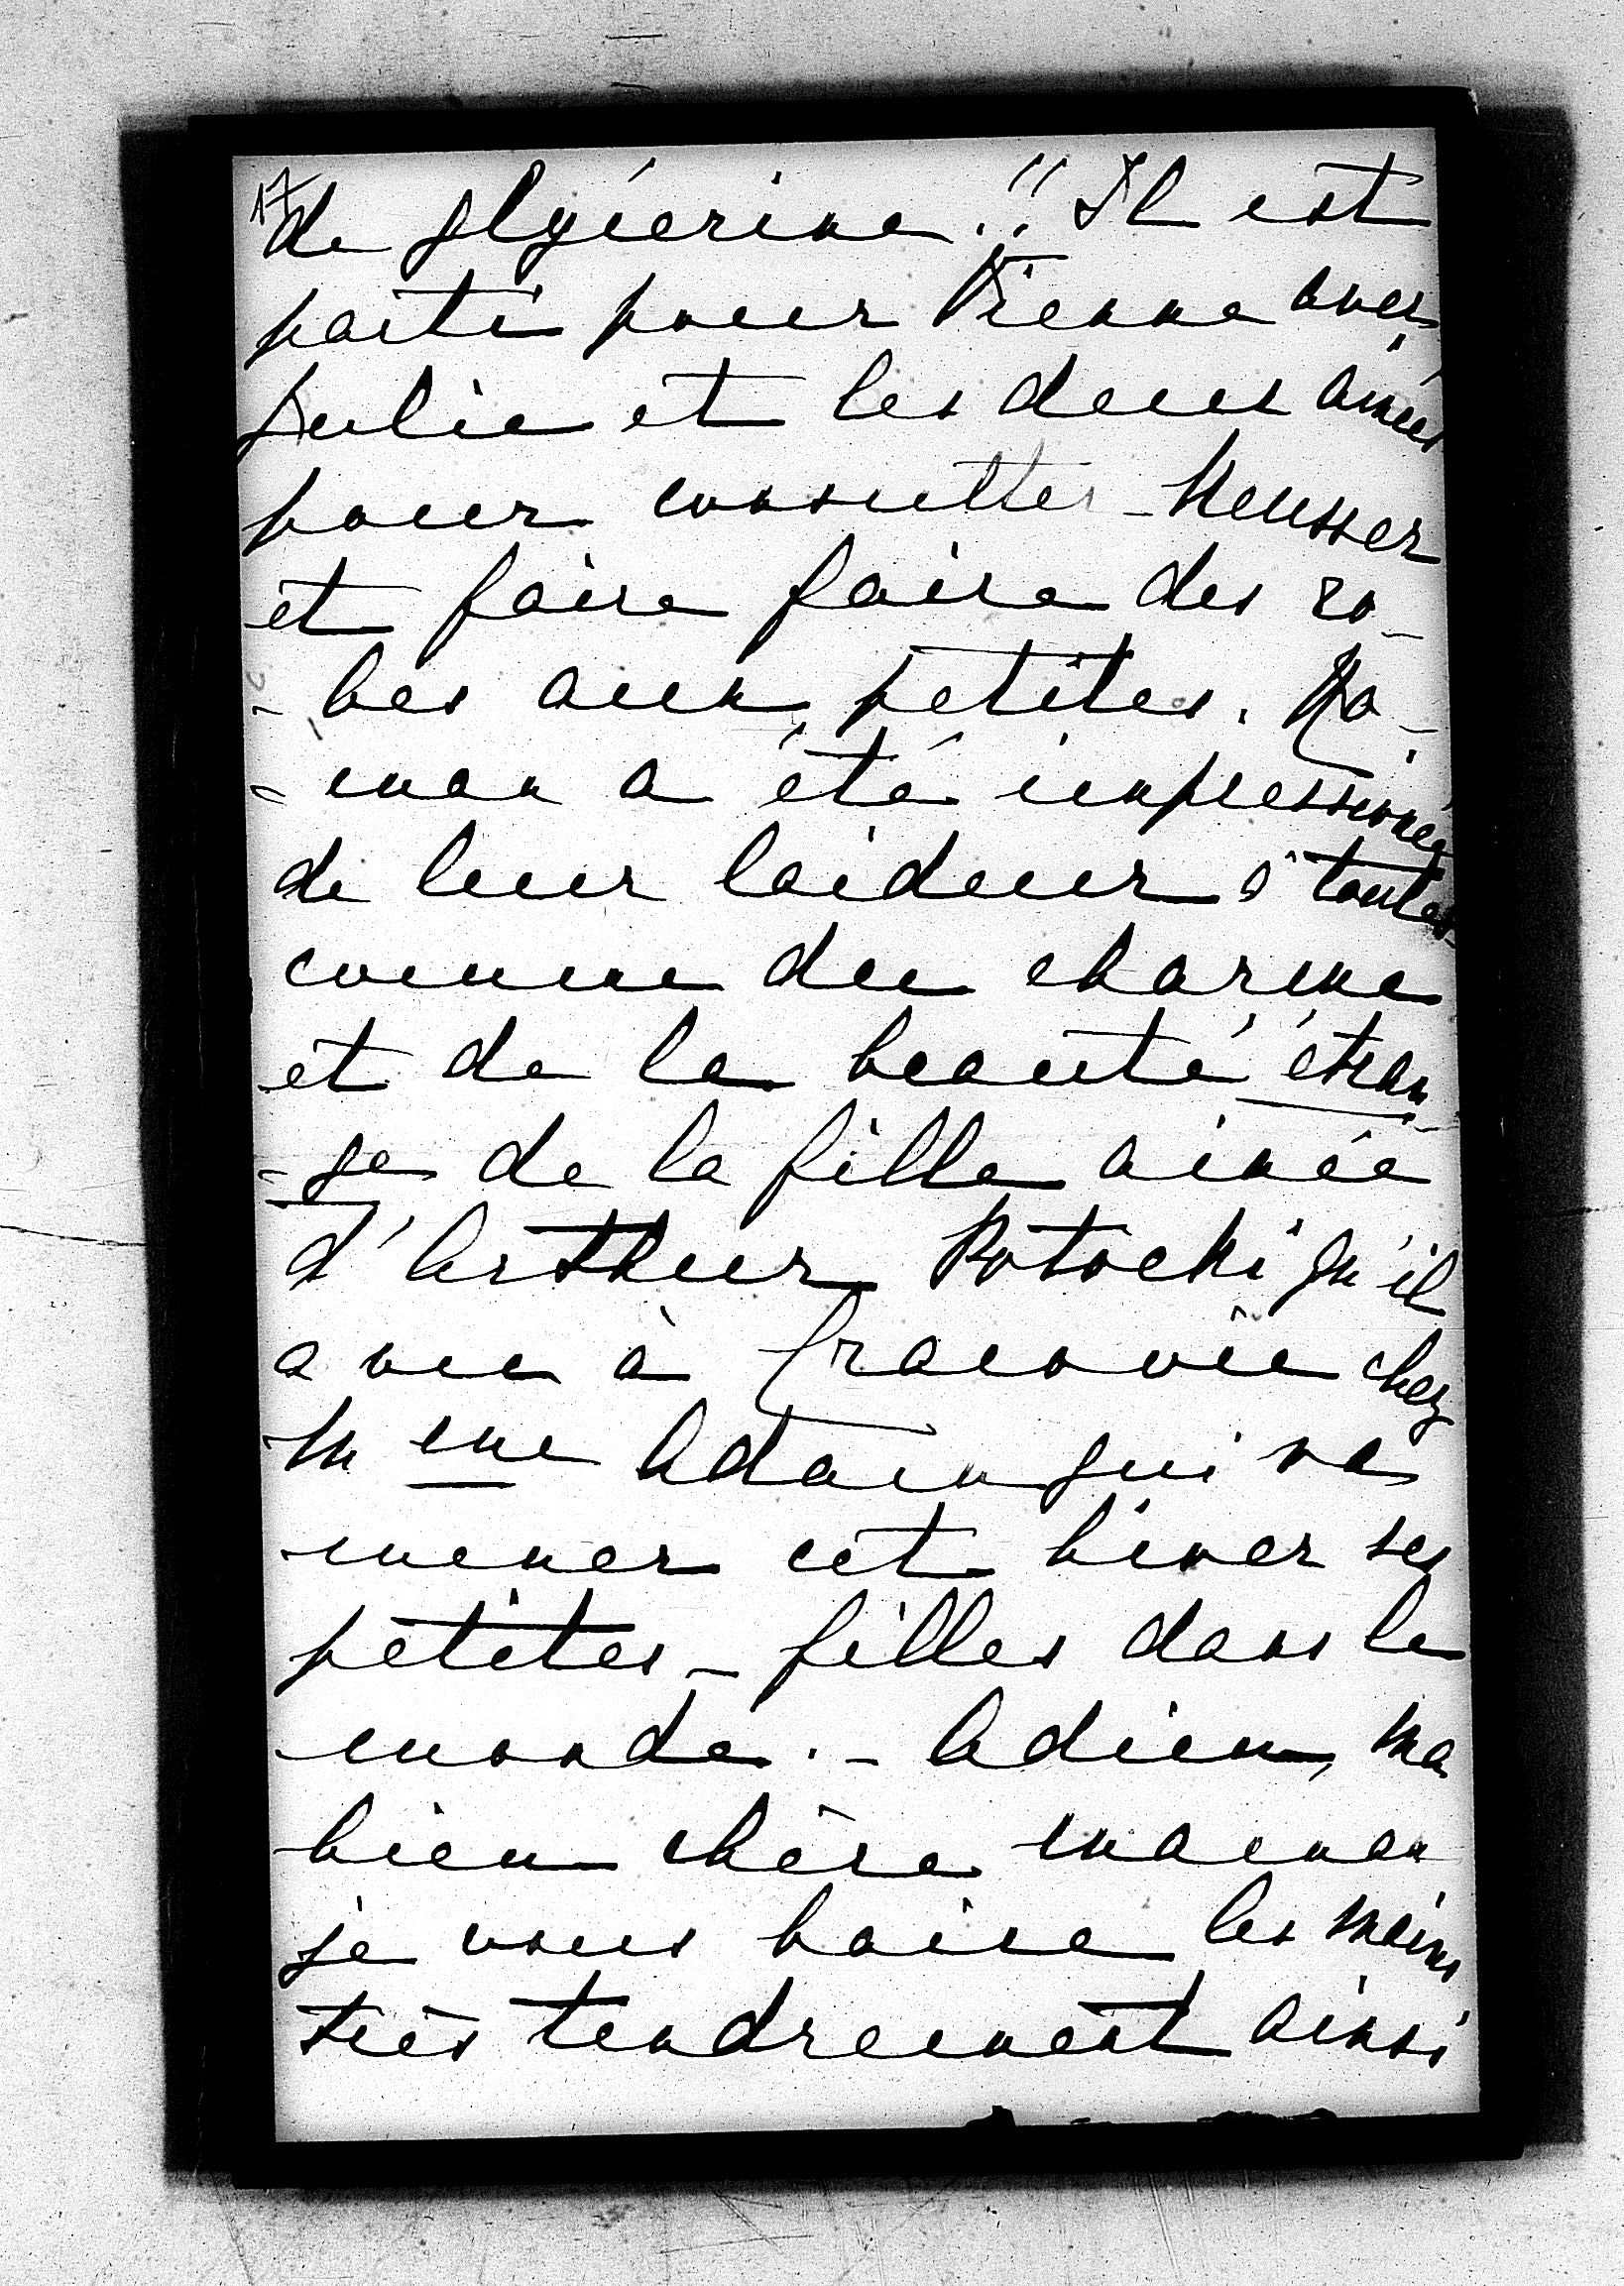 17
de glycérine!! Il est
parti pour Vienne avec
Julie et les deux ainées
pour consulter Neusser
et faire faire des ro-
-bes aux petites. Ro-
-man a été impressioné
de leur laideur à toutes
comme du charme
et de la beauté étran-
-ge de la fille ainée
d'Arthur Potocki qu'il
a vue à Cracovie chez
Mme Adam qui va
mener cet hiver ses
petites-filles dans le
monde. - Adieu, ma
bien chère maman
je vous baise les mains
très tendrement ainsi